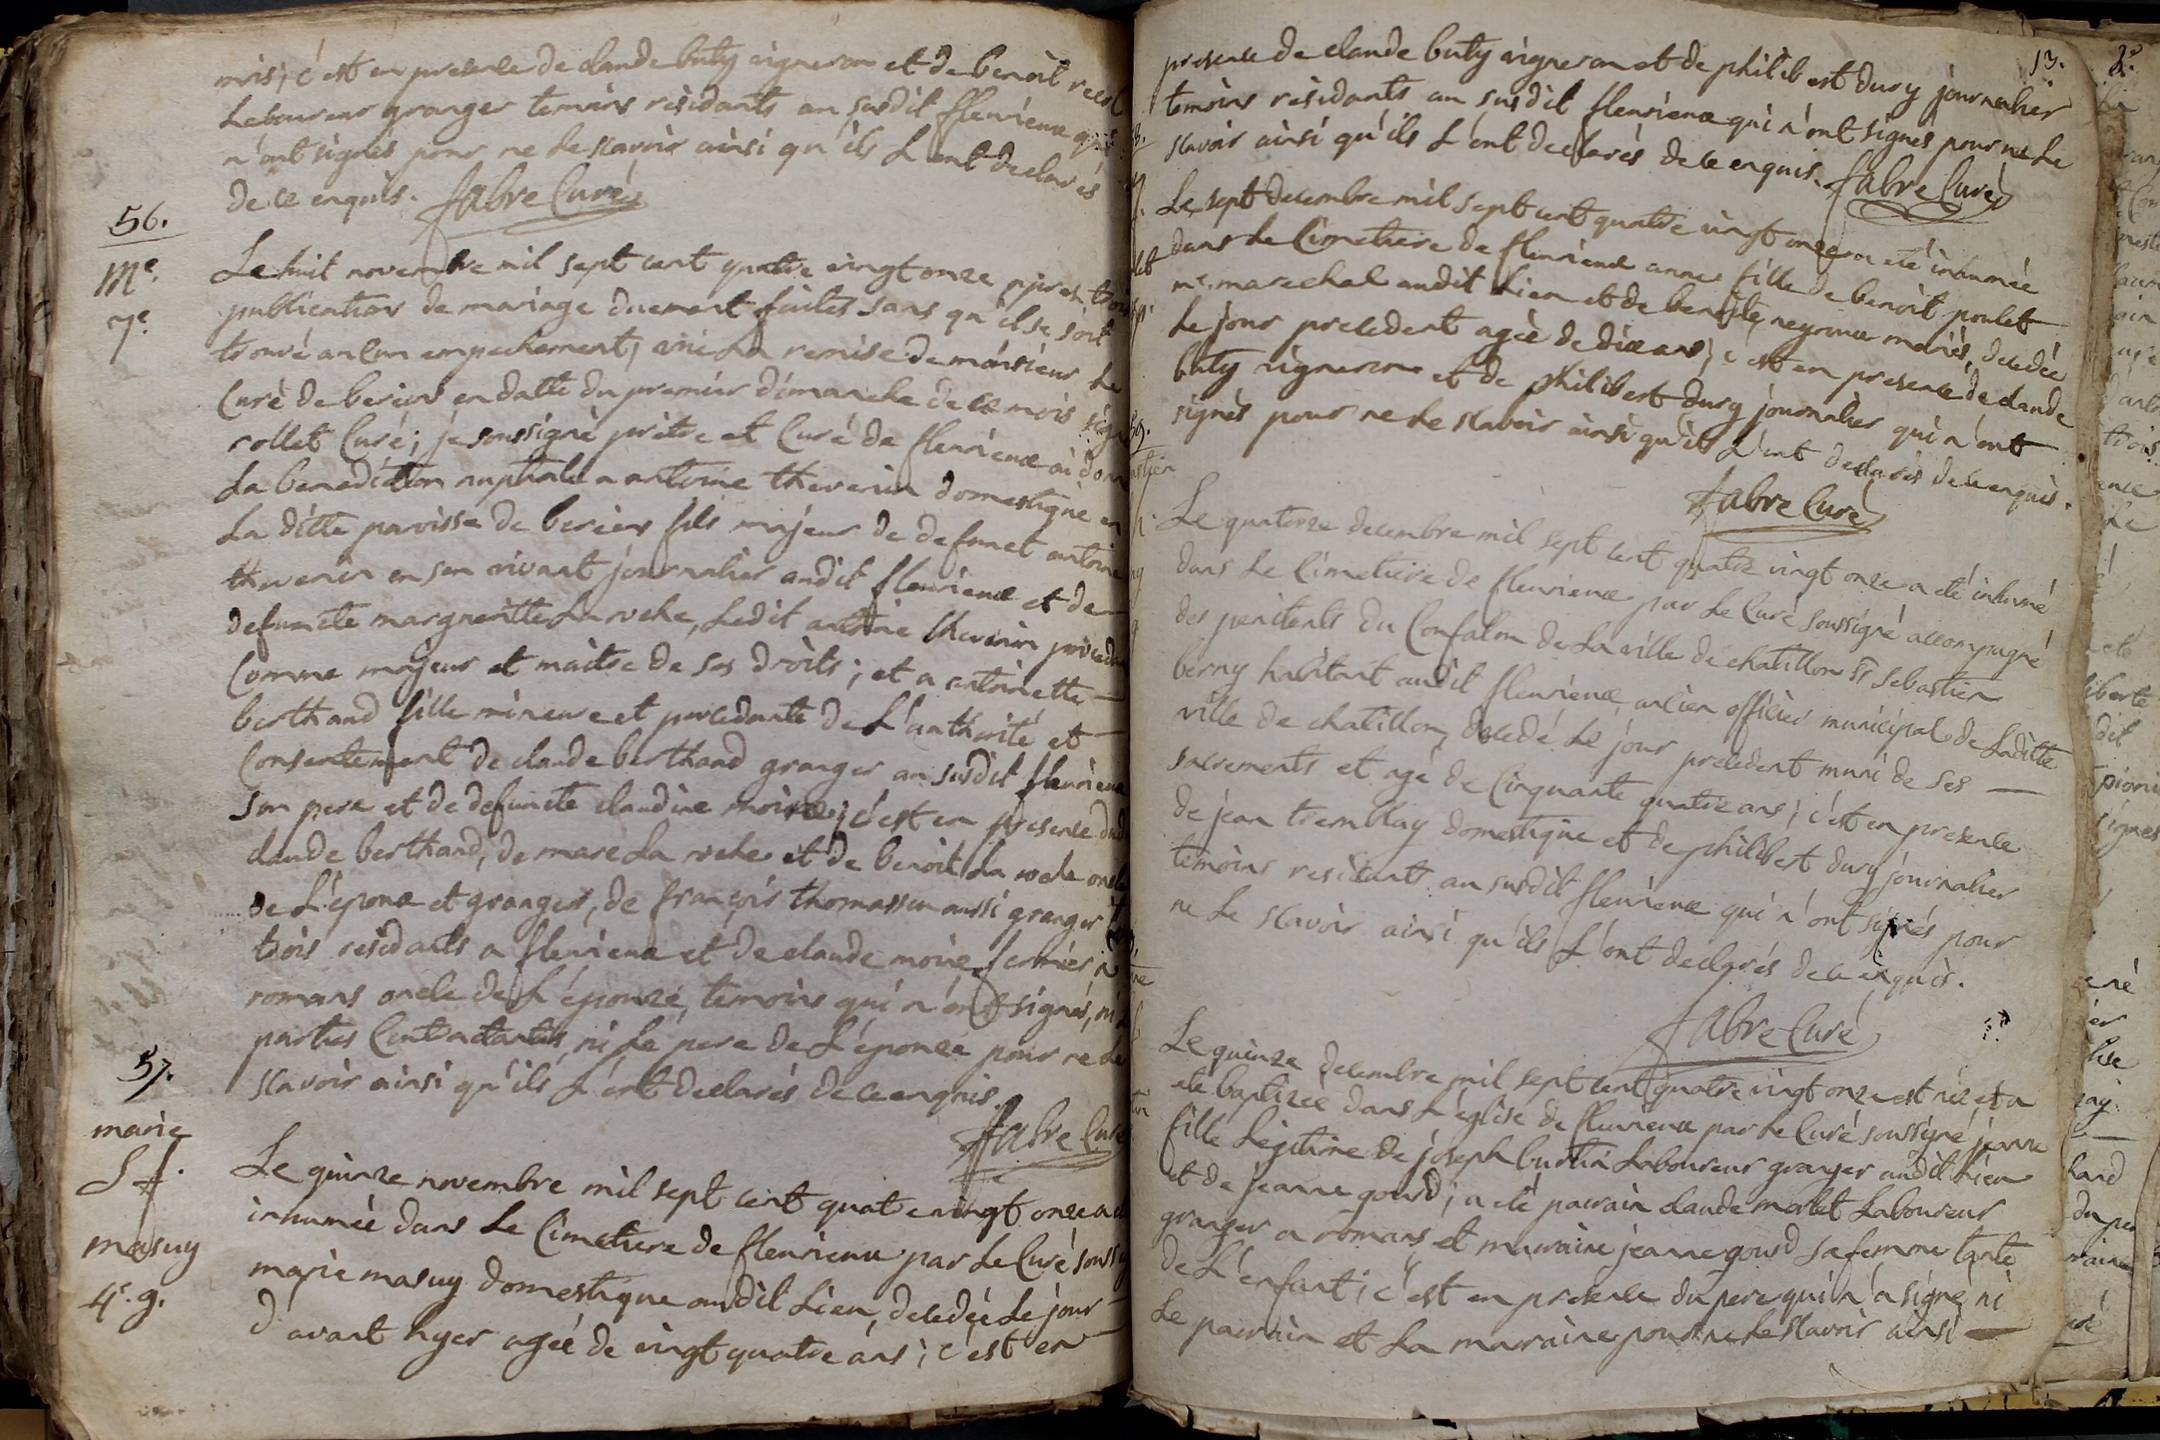 mris; c'est en presence de claude buty vigneron et de benoit
Laboureur granger temoins residants au susdit fleurieux qui
n'ont signés pour ne le scavoir ainsi qu'ils L'ont declarés
de ce enquis. fabre Curé
56.
Me.
7e.
Le huit novembre mil sept cent quatre vingt onze apres trois
publication de mariage duement faites sans qu'il se soit
trouvé aucun empechement, vüe La remise de monsieur Le
Curé de bereins en datte du premier dimanche de ce mois signé
rollet Curé; je soussigné prètre et Curé de fleurieux ai donné
La benediction nuptiale a antoine thevenin domestique en
La ditte paroisse de bereins fils majeur de defunct antoine
thevenin en son vivant journalier audit fleurieux et de
defuncte margueritte La roche, Ledit antoine thevenin procedant
Comme majeur et maitre de ses droits; et a antoinette
berthaud fille mineure et procedante de L'authorité et
Consentement de claude berthaud granger au susdit fleurieux
son pere et de defuncte claudine moire; c'est en presence dudit
claude berthaud, de marc La roche et de benoit La roche oncle
de L'epoux et granger, de françois thomasson aussi granger
trois residants a fleurieux et de claude moire fermier a
romans oncle de L'épouze, temoins qui n'ont signés, ni
parties Contractantes, ni Le pere de L'épouze pour ne Le
scavoir ainsi qu'ils L'ont declarés de ce enquis.
fabre Curé
57.
marie
masuy
4e. g.
Le quinze novembre mil sept cent quatre vingt onze a été
inhumée dans Le Cimetiere de fleurieux par Le Curé soussigné
marie masuy domestique audit Lieu, decedée Le jour
d'avant hyer agée de vingt quatre ans; c'est en
13.
presence de claude buty vigneron et de philibert dury journalier
temoins residants au susdit fleurieux qui n'ont signés pour ne Le
scavoir ainsi qu'ils L'ont declarés de ce enquis. fabre Curé
Le sept decembre mil sept cent quatre vingt onze a eté inhumée
dans Le Cimetiere de fleurieux anne fille de benoit poulet
me. marechal audit Lieu et de benoite neyroux mariés, decedée
Le jour precedent agée de dix ans; c'est en presence de claude
buty vigneron et de philibert dury journalier qui n'ont
signés pour ne Le scavoir ainsi qu'ils L'ont declarés de ce enquis.
fabre Curé
Le quatorze decembre mil sept cent quatre vingt onze a eté inhumé
dans Le Cimetiere de fleurieux par Le Curé soussigné accompagné
des penitents du Confalon de La ville de chatillon sr sebastien
berny habitant audit fleurieux ancien officier municipal de Laditte
ville de chatillon, decedé Le jour precedent muni de ses
sacrements et agé de Cinquante quatre ans; c'est en presence
de jean tremblay domestique et de philibert dury journalier
temoins residants au susdit fleurieux qui n'ont signés pour
ne Le scavoir ainsi qu'ils L'ont declarés de ce enquis.
fabre Curé
Le quinze decembre mil sept cent quatre vingt onze est née et a
eté baptizée dans L'eglise de fleurieux par Le Curé soussigné jeanne
fille Legitime de joseph burtin Laboureur granger audit Lieu
et de jeanne gourd; a eté parrain claude morlet Laboureur
granger a romans et marraine jeanne gourd sa femme tante
de L'enfant; c'est en presence du pere qui n'a signé, ni
Le parrain et La marraine pour ne Le scavoir ainsi